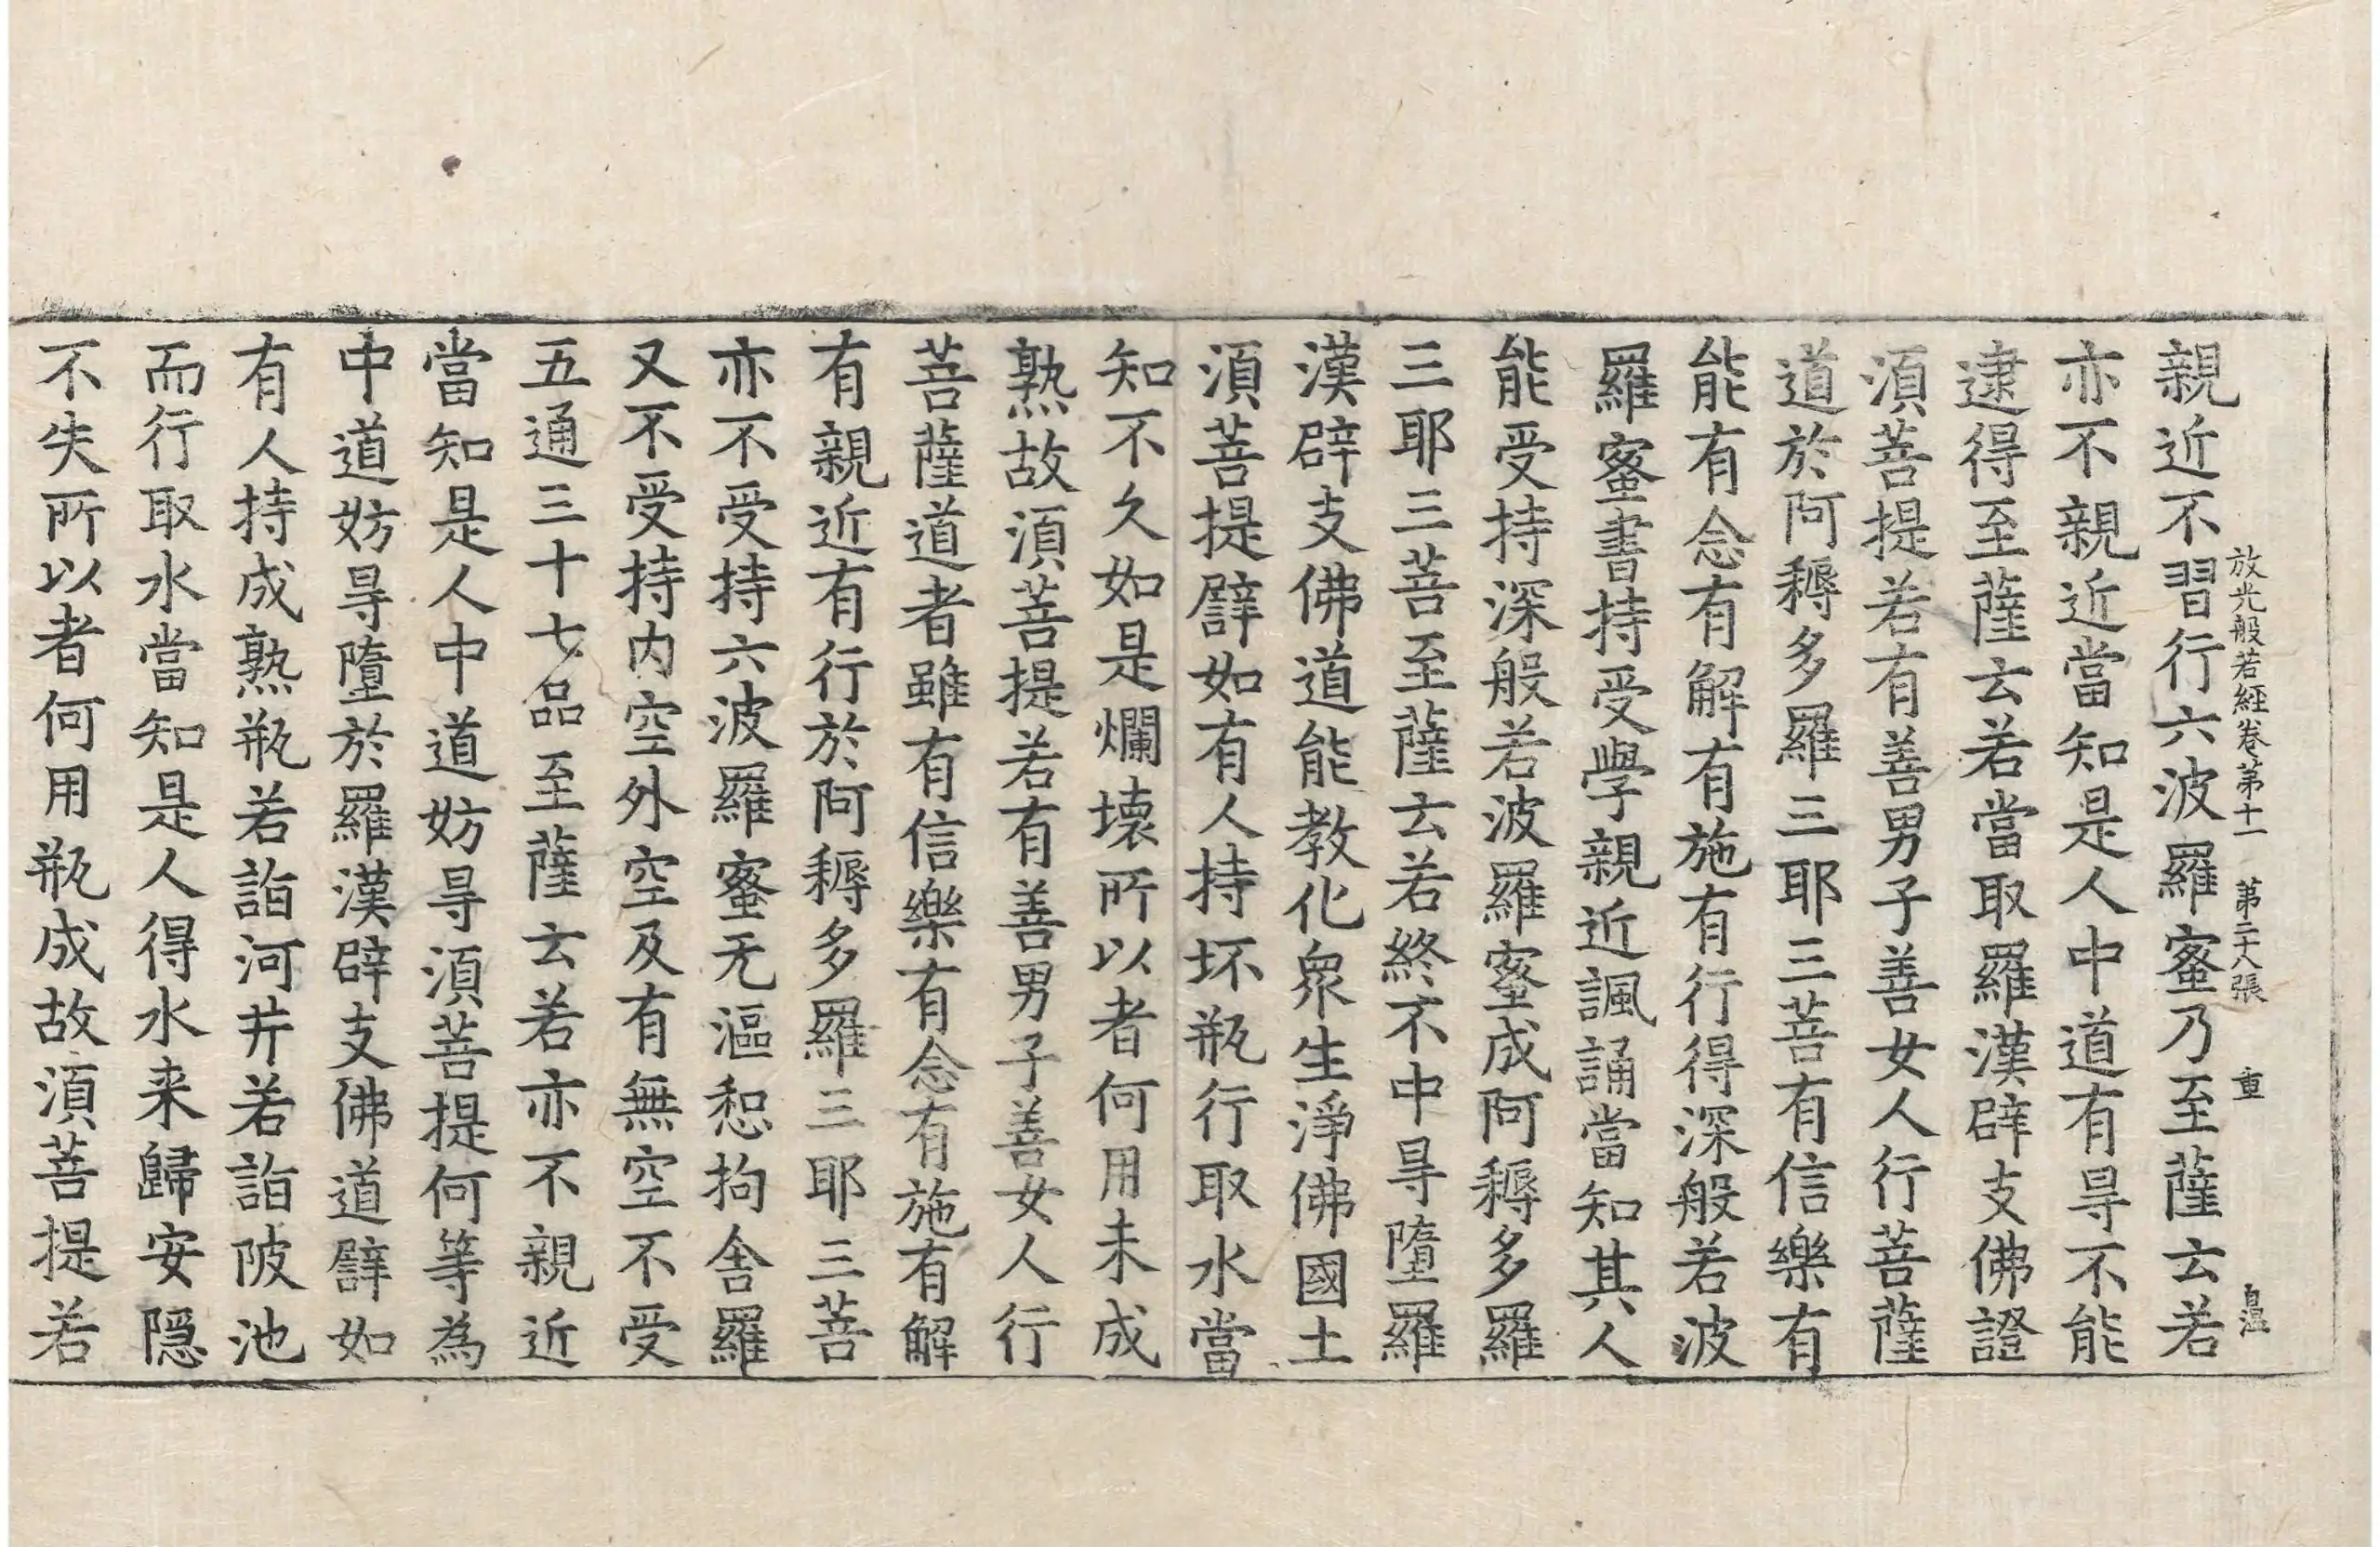 放光般若經卷第十一　第二十八張　重　自温
親近不習行六波羅蜜乃至薩云若
亦不親近當知是人中道有㝵不能
逮得至薩云若當取羅漢辟支佛證
須菩提若有善男子善女人行菩薩
道於阿耨多羅三耶三菩有信樂有
能有念有解有施有行得深般若波
羅蜜書持受學親近諷誦當知其人
能受持深般若波羅蜜成阿耨多羅
三耶三菩至薩云若終不中㝵墮羅
漢辟支佛道能教化衆生淨佛國土
須菩提譬如有人持坏瓶行取水當
知不久如是爛壞所以者何用未成
熟故須菩提若有善男子善女人行
菩薩道者雖有信樂有念有施有解
有親近有行於阿耨多羅三耶三菩
亦不受持六波羅蜜无漚惒拘舍羅
又不受持內空外空及有無空不受
五通三十七品至薩云若亦不親近
當知是人中道妨㝵須菩提何等為
中道妨㝵墮於羅漢辟支佛道譬如
有人持成熟瓶若詣河井若詣陂池
而行取水當知是人得水来歸安隱
不失所以者何用瓶成故須菩提若